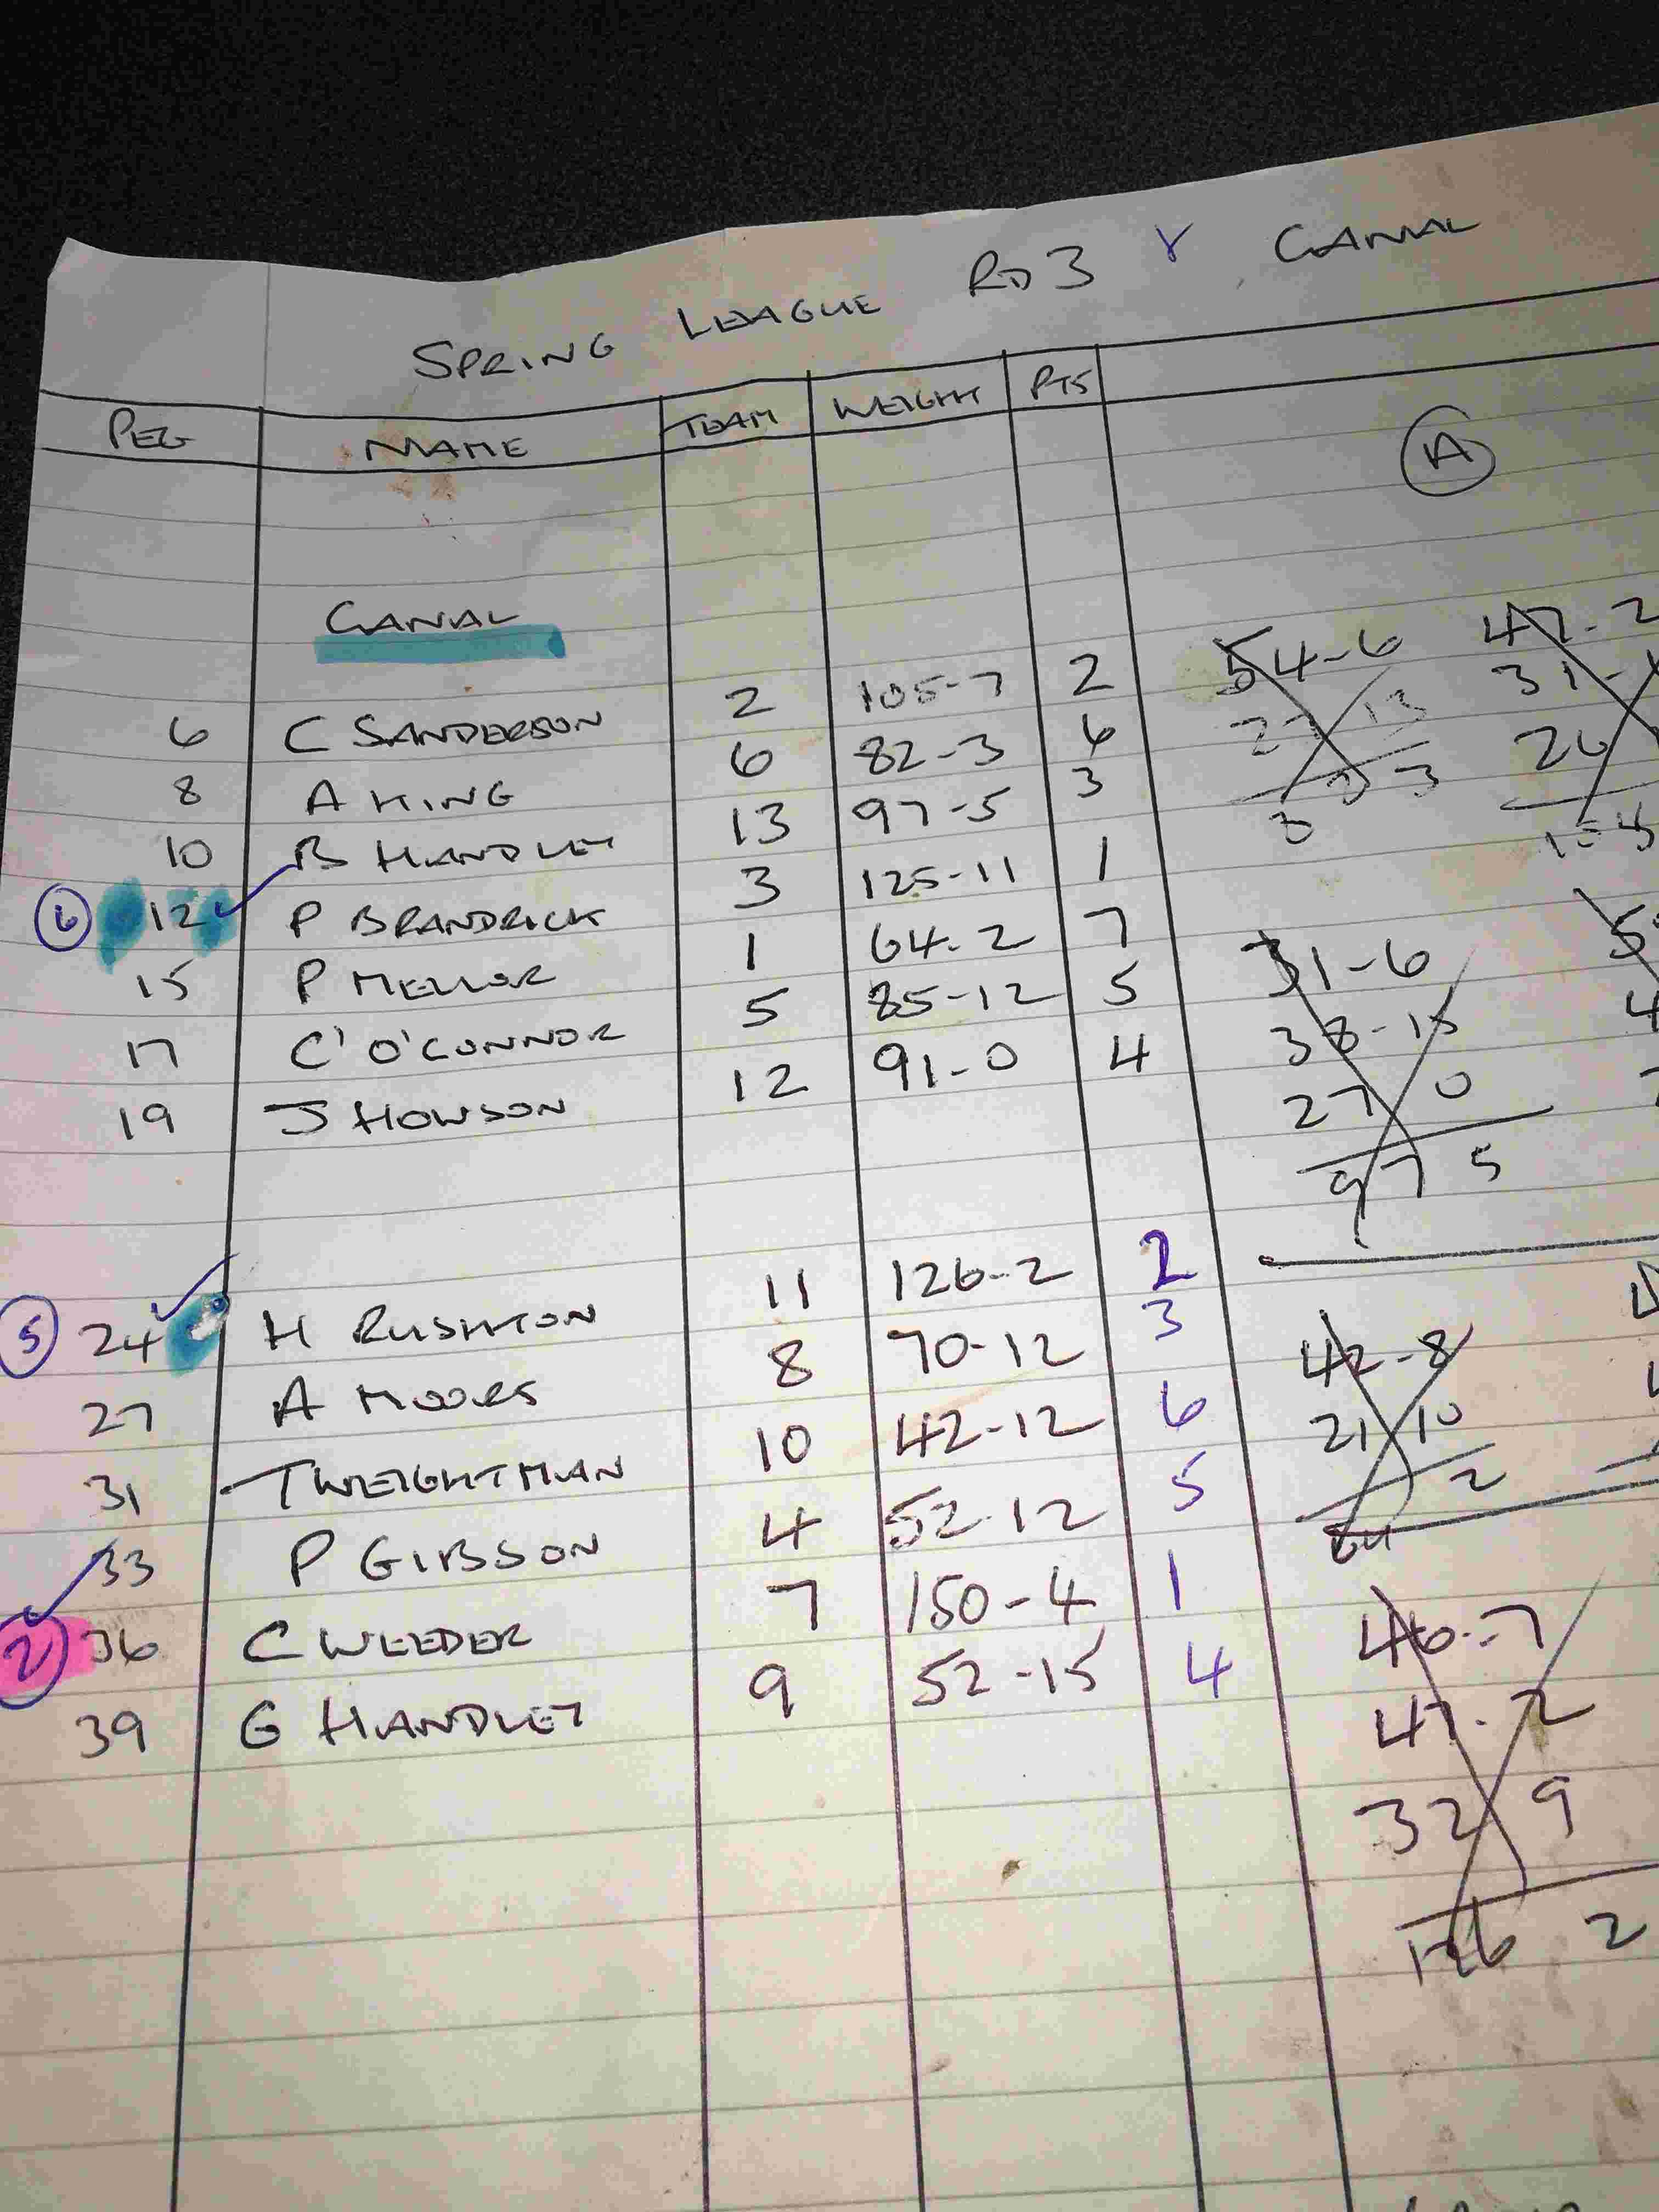 SPRING LEAGUE RD 3 CANAL
PEG NAME TEAM WEIGHT PTS
A
CANAL
6 C SANDERSON 2 105-7 2
8 A KING 6 82-3 6
10 B HANDLEY 13 97-5 3
6 12 P BRANDRICK 3 125-11 1
15 P MELLOR 1 64-2 7
17 C O'CONNOR 5 85-12 5
19 J HOWSON 12 91-0 4
5 24 H RUSHTON 11 126-2 2
27 A MOORS 8 70-12 3
31 T WEIGHTMAN 10 42-12 6
33 P GIBSON 4 52-12 5
2 36 C WEEDER 7 150-4 1
39 G HANDLEY 9 52-15 4
54-6 47-2
27 13 31-
26
3
31-6
38-15
27 0
97 5
42-8
21 10
64 2
46-7
47-2
32 9
126 2